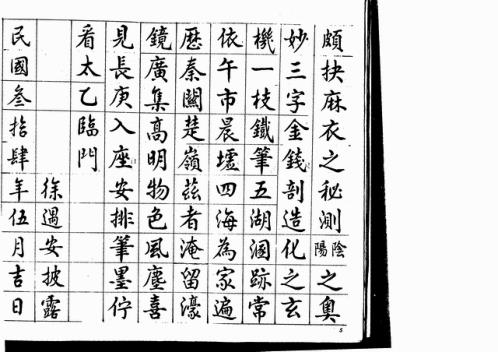 頗抉麻衣之秘測陰陽之奧
妙三字金錢剖造化之玄
機一枝鐵筆五湖涸跡常
依午市晨墟四海為家遍
歷秦關楚嶺茲者淹留濠
鏡廣集高明物色風塵喜
見長庚入座安排筆墨佇
看太乙臨門
徐遇安披露
民國叁拾肆年伍月吉日
5